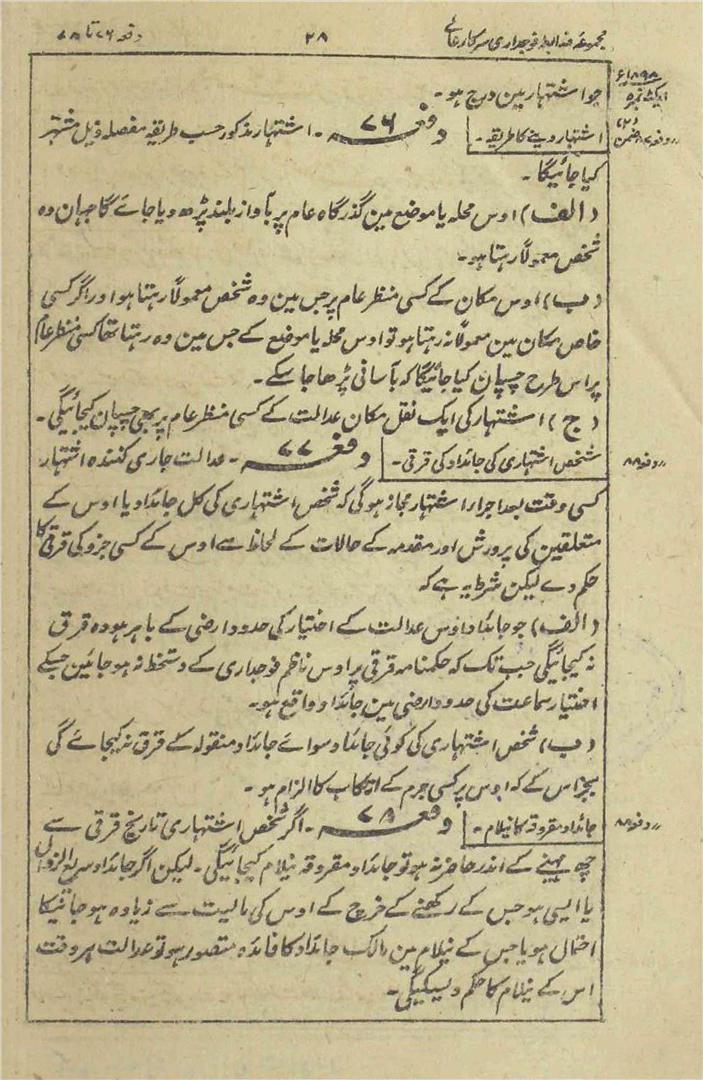 مجموعہ ضابطہ فوجداری سرکار عالی ۲۸ دفعہ ۷۶ تا ۷۸
۱۸۹۸ء
ایکٹ نمبر ۵
جو اشتہار مین درج ہو۔
اشتہار دینے کا طریقہ۔ دفعہ ۷۶۔ اشتہار مذکور حسب طریقہ مفصلہ ذیل مشتہر
کیا جائیگا۔
(الف) اوس محلہ یا موضع مین گذرگاہ عام پر بآواز بلند پڑھ دیا جائے گا جہان وہ
شخص معمولاً رہتا ہو۔
(ب) اوس مکان کے کسی منظر عام پر جس مین وہ شخص معمولاً رہتا ہو اور اگر کسی
خاص مکان مین معمولاً نہ رہتا ہو تو اوس محلہ یا موضع کے جس مین وہ رہتا تھا کسی منظر عام
پر اس طرح چسپان کیا جائیگا کہ بآسانی پڑھا جا سکے۔
(ج) اشتہار کی ایک نقل مکان عدالت کے کسی منظر عام پر بھی چسپان کیجائیگی۔
شخص اشتہاری کی جائداد کی قرقی۔ دفعہ ۷۷۔ عدالت جاری کنندہ اشتہار
〃 دفعہ ۸۸
کسی وقت بعد اجرا اشتہار مجاز ہوگی کہ شخص اشتہاری کی کل جائداد یا اوس کے
متعلقین کی پرورش اور مقدمہ کے حالات کے لحاظ سے اوس کے کسی جزو کی قرقی کا
حکم دے لیکن شرط یہ ہے کہ
(الف) جو جائداد اوس عدالت کے اختیار کی حدود ارضی کے باہر ہو وہ قرق
نہ کیجائیگی جب تک کہ حکمنامہ قرقی پر اوس ناظم فوجداری کے دستخط نہ ہو جائین جسکے
اختیار سماعت کی حدود ارضی مین جائداد واقع ہو۔
(ب) شخص اشتہاری کی کوئی جائداد سوائے جائداد منقولہ کے قرق نہ کیجائے گی
بجز اس کے کہ اوس پر کسی جرم کے ارتکاب کا الزام ہو۔
جائداد مقروقہ کا نیلام۔ دفعہ ۷۸۔ اگر شخص اشتہاری تاریخ قرقی سے
〃 دفعہ ۸۸
چھ مہینے کے اندر حاضر نہ ہو تو جائداد مقروقہ نیلام کیجائیگی۔ لیکن اگر جائداد سریع الزوال
یا ایسی ہو جس کے رکھنے کے خرچ کے اوس کی مالیت سے زیادہ ہو جانیکا
احتمال ہو یا جس کے نیلام مین مالک جائداد کا فائدہ متصور ہو تو عدالت ہر وقت
اس کے نیلام کا حکم دیسکیگی۔